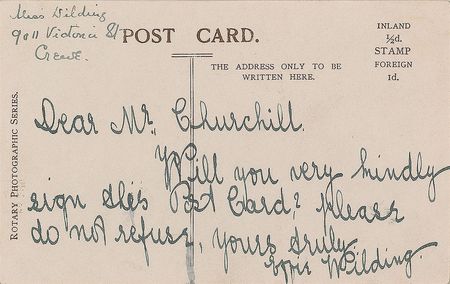 Miss Wilding
90 Victoria St
Crewe.
POST CARD.
INLAND
½d.
STAMP
FOREIGN
1d.
THE ADDRESS ONLY TO BE
WRITTEN HERE.
ROTARY PHOTOGRAPHIC SERIES.
Dear Mr. Churchill.
Will you very kindly
sign this Post Card? Please
do not refuse, yours truly
Wilding.